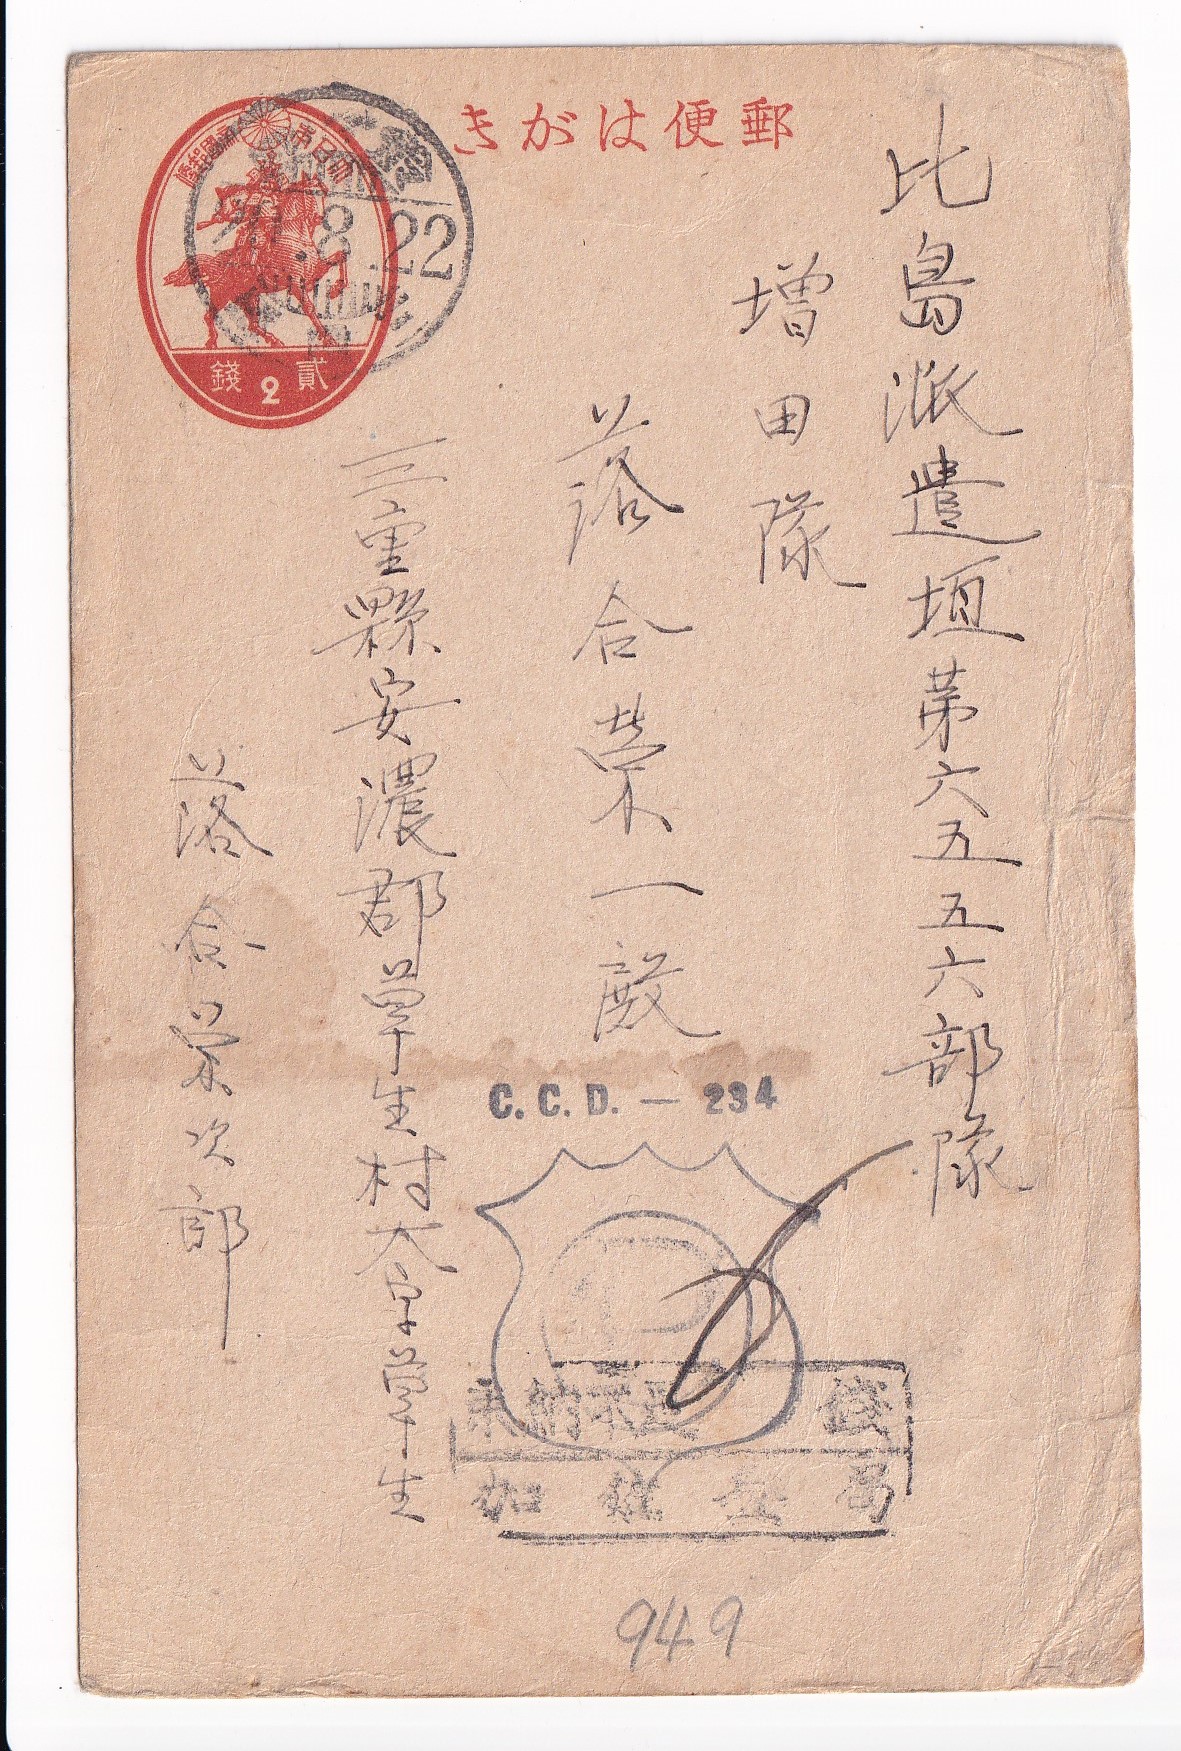 郵便はがき
大日本帝國郵便
貳2錢
22
比島派遣垣第六五五六部隊
増田隊
落合榮一殿
三重縣安濃郡草生村大字草生
落合榮次郎
C. C. D. — 234
949